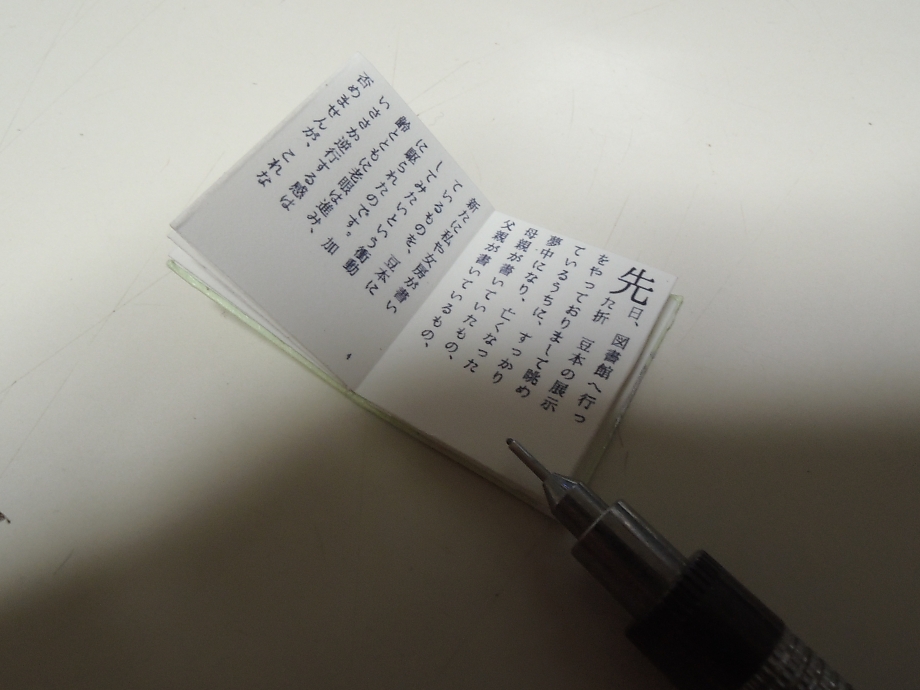 先日、図書館へ行っ
た折 豆本の展示
をやっておりまして眺め
ているうちに、すっかり
夢中になり、亡くなった
母親が書いていたもの、
父親が書いているもの、
新たに私や女房が書い
ているものを、豆本に
してみたいという衝動
に駆られたのです。加
齢とともに老眼は進み、
いささか逆行する感は
否めませんが、これな